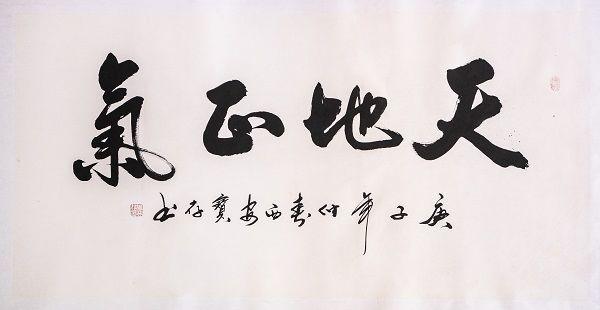 天地正氣
庚子年仲春西安寶存书